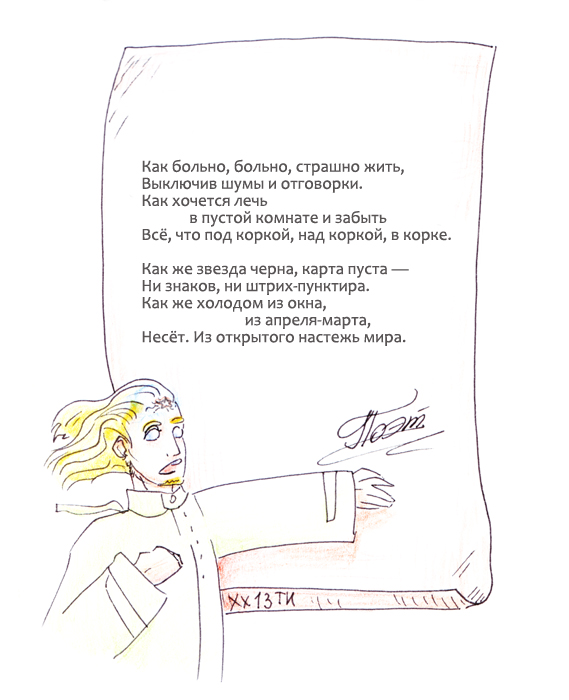 Как больно, больно, страшно жить,
Выключив шумы и отговорки.
Как хочется лечь
в пустой комнате и забыть
Всё, что под коркой, над коркой, в корке.
Как же звезда черна, карта пуста —
Ни знаков, ни штрих-пунктира.
Как же холодом из окна,
из апреля-марта,
Несёт. Из открытого настежь мира.
Поэт
ХХ13ТИ